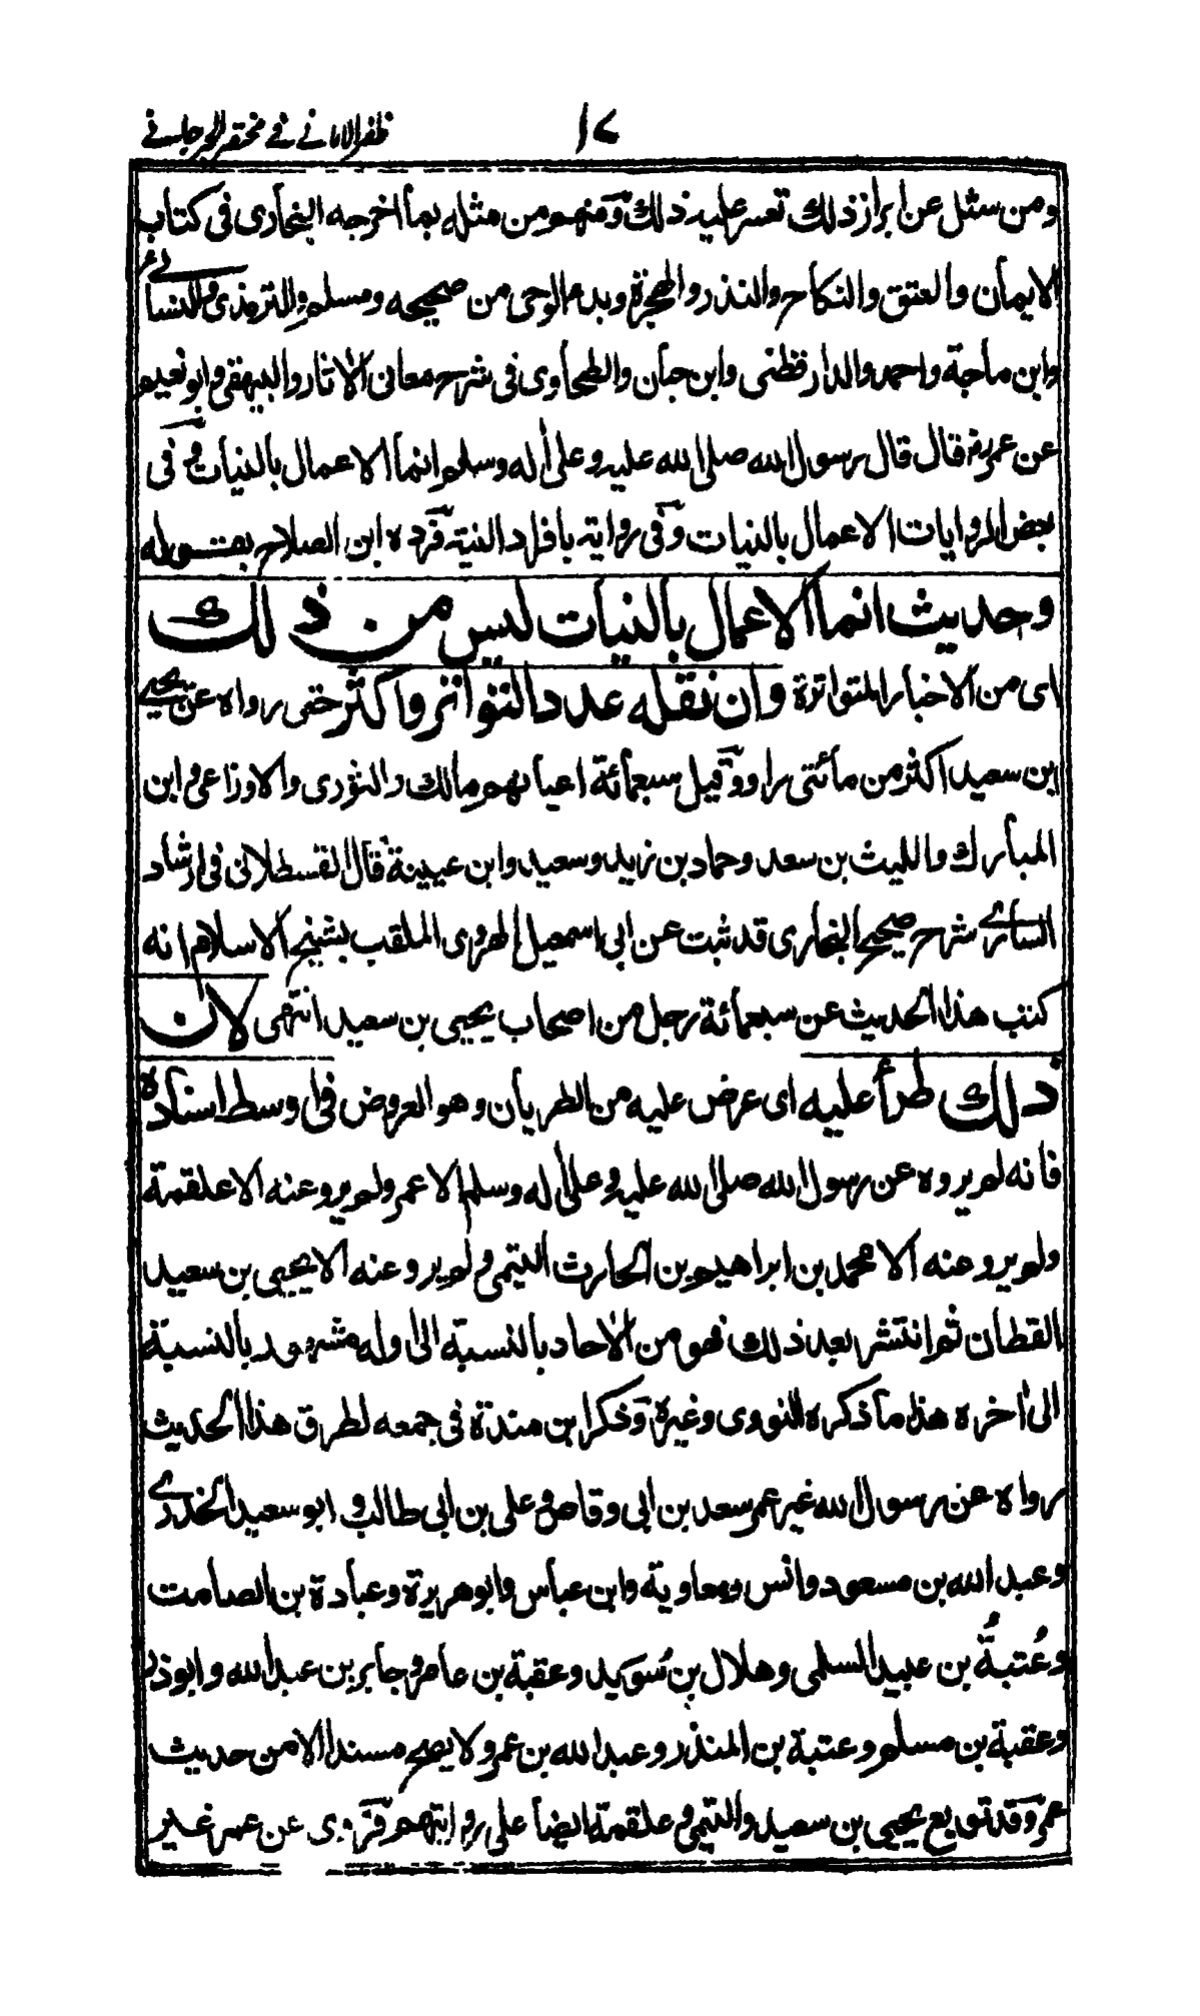 ١٧ ظفر الاماني في مختصر الجرجاني
ومن سئل عن ابراز ذلك تعسر عليه ذلك ومنهم من مثله بما اخرجه البخاري في كتاب
الايمان والعتق والنكاح والنذر والهجرة وبدء الوحي من صحيحه ومسلم والترمذي والنسائي
وابن ماجة واحمد والدارقطني وابن حبان والطحاوي في شرح معاني الاثار والبيهقي وابو نعيم
عن عمر رض قال قال رسول الله صلى الله عليه وعلى اله وسلم انما الاعمال بالنيات وفي
بعض الروايات الاعمال بالنيات وفي رواية بافراد النية فرده ابن الصلاح بقوله
وحديث انما الاعمال بالنيات ليس من ذلك
اى من الاخبار المتواترة وان نقله عدد التواتر واكثر حتى رواه عن يحيى
ابن سعيد اكثر من مائتي راو وقيل سبعمائة اعيانهم مالك والثوري والاوزاعي وابن
المبارك والليث بن سعد وحماد بن زيد وسعيد وابن عيينة قال القسطلاني في ارشاد
الساري شرح صحيح البخاري قد ثبت عن ابي اسمعيل الهروي الملقب بشيخ الاسلام انه
كتب هذا الحديث عن سبعمائة رجل من اصحاب يحيى بن سعيد انتهى لان
ذلك طرأ عليه اى عرض عليه من الطريان وهو العروض في اوسط اسناده
فانه لم يروه عن رسول الله صلى الله عليه وعلى اله وسلم الا عمر ولم يرو عنه الا علقمة
ولم يرو عنه الا محمد بن ابراهيم بن الحارث التيمي ولم يرو عنه الا يحيى بن سعيد
القطان ثم انتشر بعد ذلك فهو من الاحاد بالنسبة الى اوله مشهور بالنسبة
الى اخره هذا ما ذكره النووي وغيره وذكر ابن مندة في جمعه لطرق هذا الحديث
رواه عن رسول الله غير عمر سعد بن ابي وقاص وعلي بن ابي طالب وابو سعيد الخدري
وعبد الله بن مسعود وانس ومعاوية وابن عباس وابو هريرة وعبادة بن الصامت
وعُتبةُ بن عبيد السلمي وهلال بن سُوَيد وعقبة بن عامر وجابر بن عبد الله وابوذر
وعقبة بن مسلم وعتبة بن المنذر وعبد الله بن عمر ولا يصح مسندا الا من حديث
عمر وقد توبع يحيى بن سعيد والتيمي وعلقمة ايضا على روايتهم فروى عن عمر غير